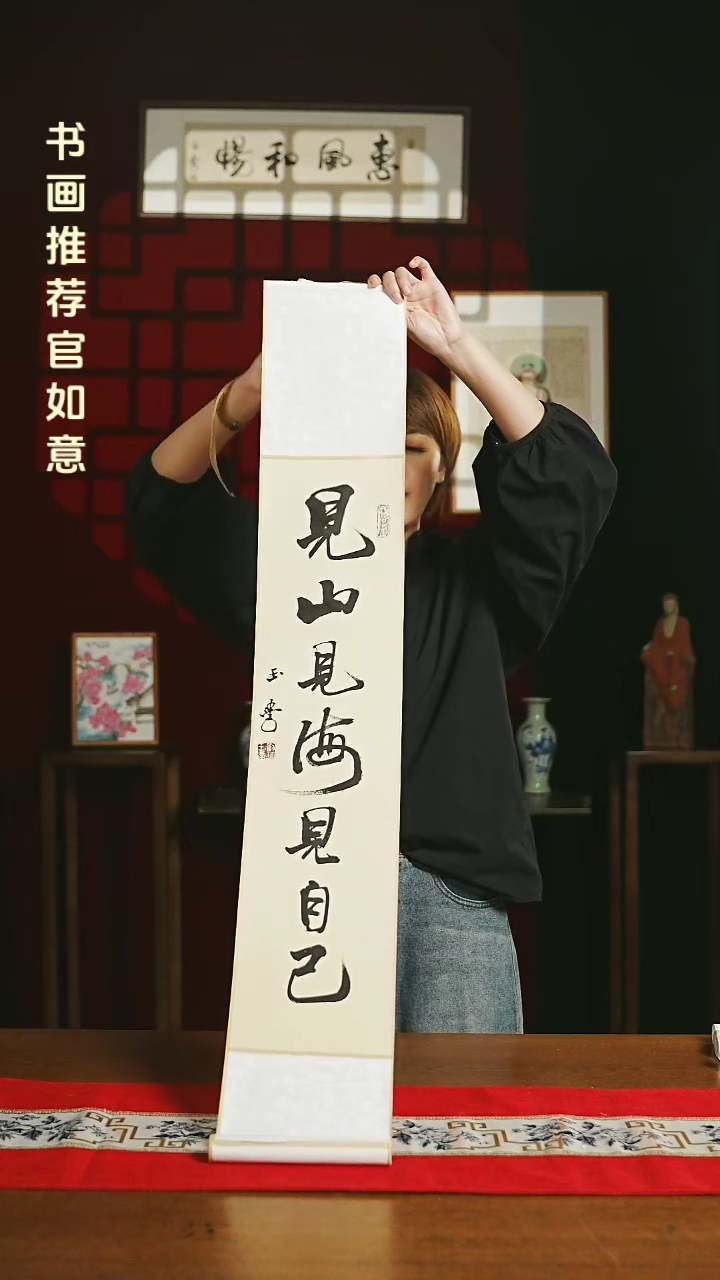 书画推荐官如意
惠風和暢
見山見海見自己